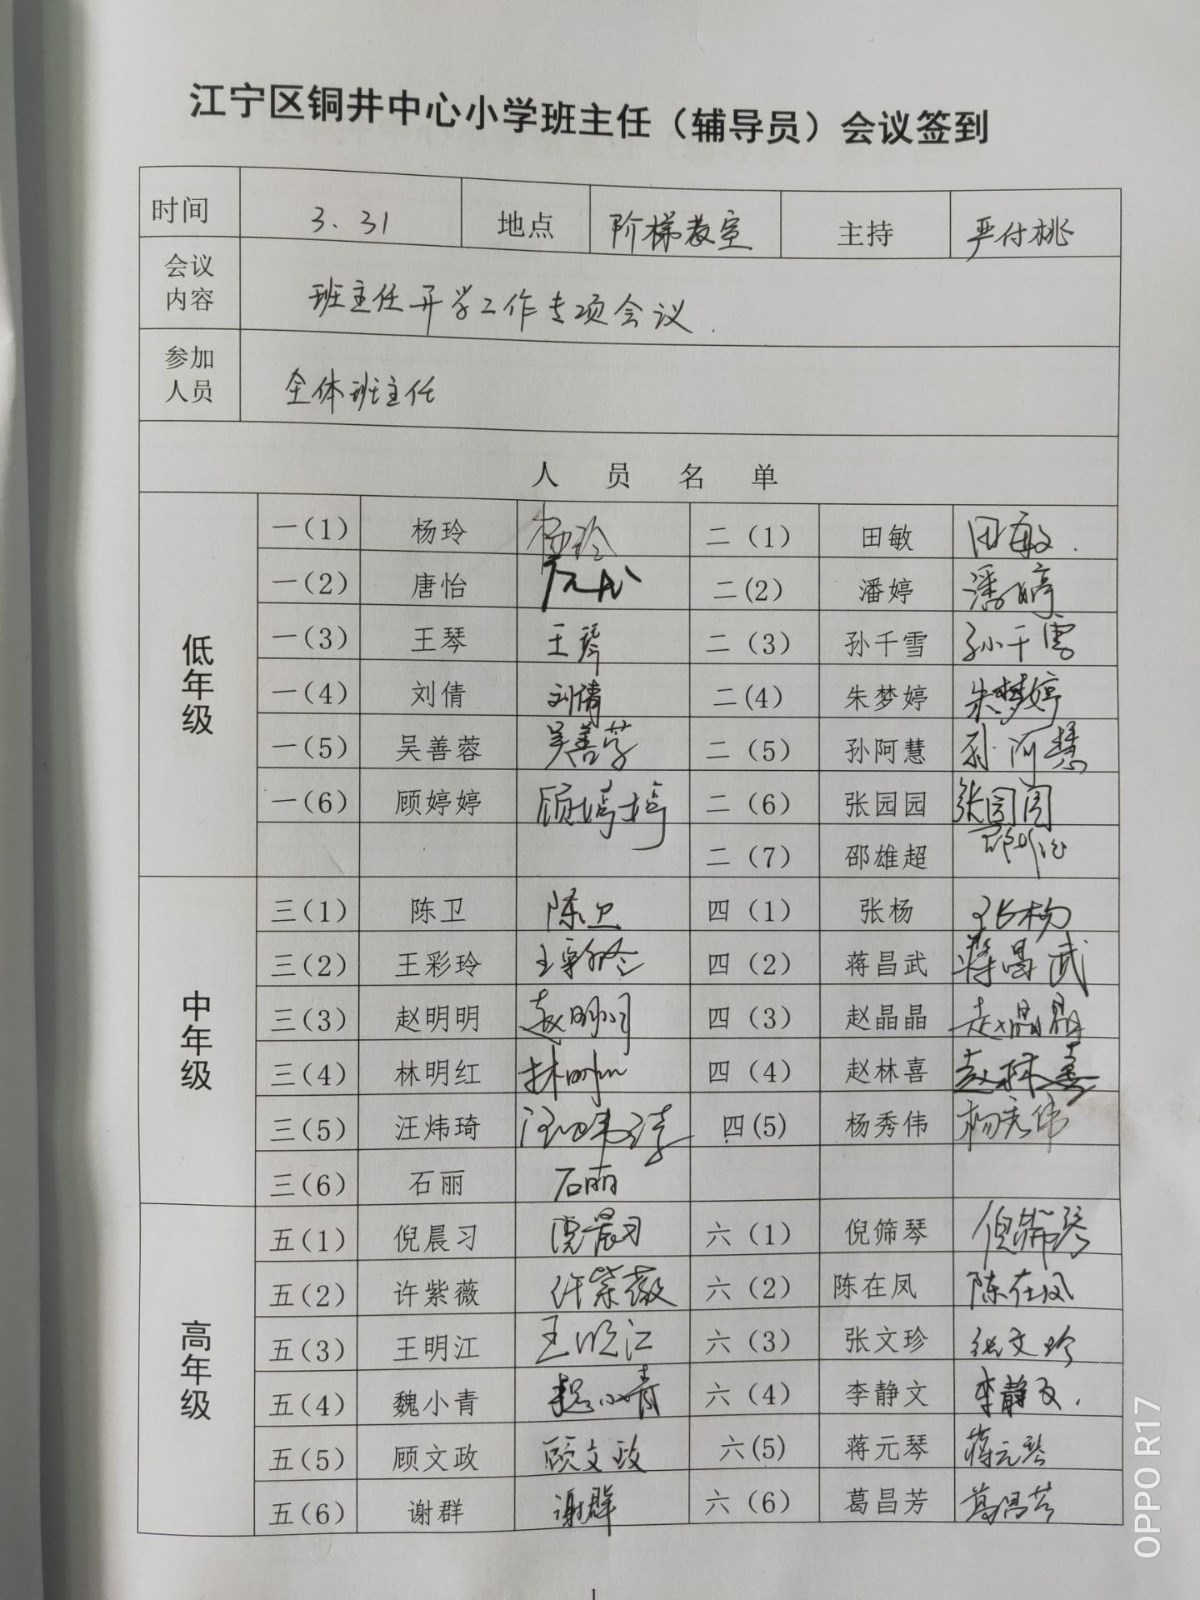 江宁区铜井中心小学班主任（辅导员）会议签到
时间 3.31 地点 阶梯教室 主持 严付桃
会议内容 班主任开学工作专项会议.
参加人员 全体班主任
人 员 名 单
低年级
一(1) 杨玲 杨玲 二（1） 田敏 田敏.
一(2) 唐怡 二(2) 潘婷 潘婷
一(3) 王琴 王琴 二（3） 孙千雪 孙千雪
一(4) 刘倩 刘倩 二(4) 朱梦婷 朱梦婷
一(5) 吴善蓉 吴善蓉 二（5） 孙阿慧 孙阿慧
一(6) 顾婷婷 顾婷婷 二（6） 张园园 张园园
二（7） 邵雄超
中年级
三(1) 陈卫 陈卫 四（1） 张杨 张杨
三(2) 王彩玲 王彩玲 四（2） 蒋昌武 蒋昌武
三(3) 赵明明 赵明明 四（3） 赵晶晶 赵晶晶
三(4) 林明红 林明红 四（4） 赵林喜 赵林喜
三(5) 汪炜琦 汪炜琦 四(5) 杨秀伟 杨秀伟
三(6) 石丽 石丽
高年级
五(1) 倪晨习 倪晨习 六（1） 倪筛琴 倪筛琴
五(2) 许紫薇 许紫薇 六（2） 陈在凤 陈在凤
五(3) 王明江 王明江 六（3） 张文珍 张文珍
五(4) 魏小青 魏小青 六（4） 李静文 李静文.
五(5) 顾文政 顾文政 六(5) 蒋元琴 蒋元琴
五(6) 谢群 谢群 六（6） 葛昌芳 葛昌芳
1
OPPO R17